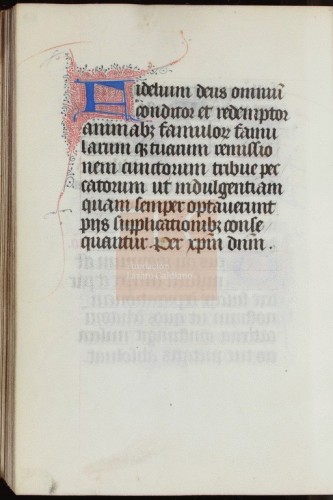 Fidelium deus omniū
conditor et redemptor
animabꝫ famulor famu
larum qꝫ tuarum remissio
nem cunctorum tribue pec
catorum ut indulgentiam
quam semper optaverunt
pijs supplicationibꝫ conse
quantur. Per xpm̄ dnm̄.
Fundación
Lázaro Galdiano